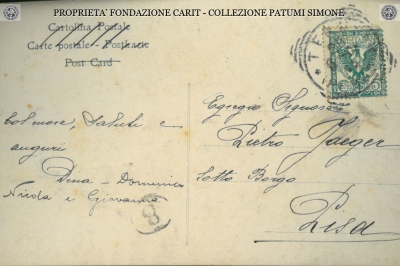 PROPRIETA' FONDAZIONE CARIT - COLLEZIONE PATUMI SIMONE
Cartolina Postale
Carte postale - Postkarte
Post Card
TE
Col cuore, Saluti e
auguri
Dina - Domenico
Nicola e Giovanna
8
Egregio Signore
Pietro Jaeger
Sotto Borgo
Pisa